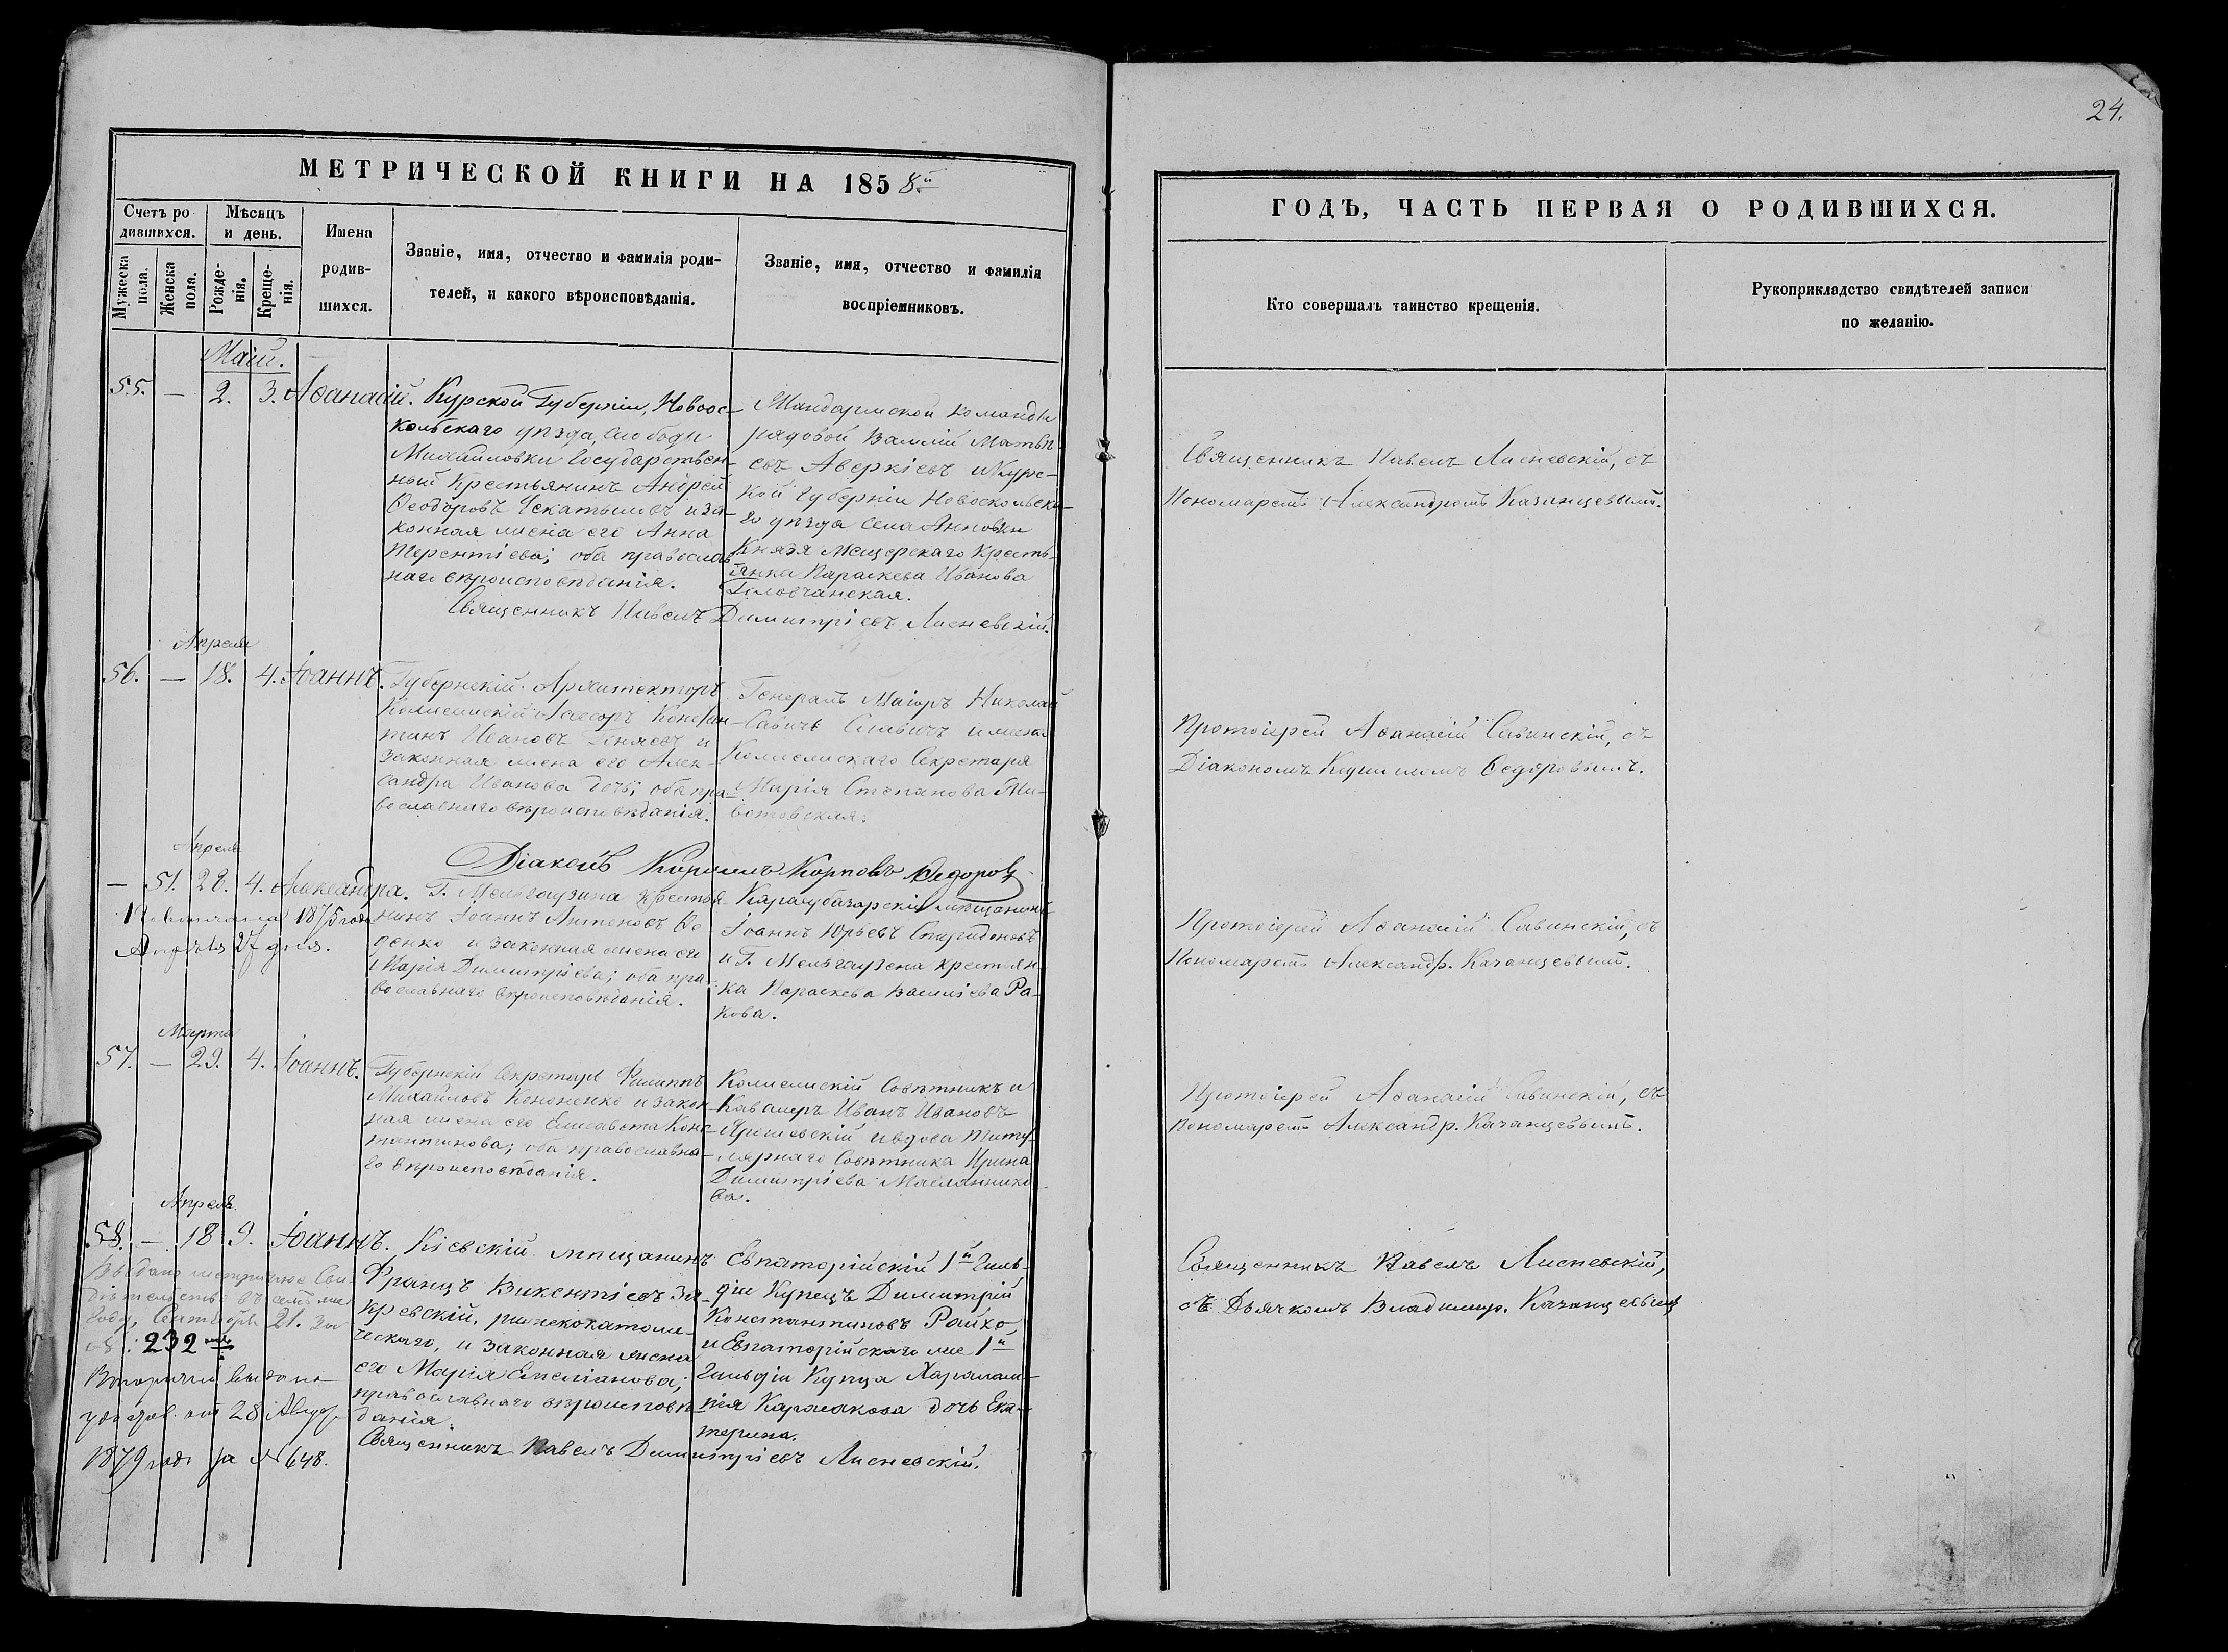 24.
МЕТРИЧЕСКОЙ КНИГИ НА 1858й
Счетъ ро-
дившихся.
Мужеска пола.
Женска пола.
Мѣсяцъ
и день.
Рожде-
нія.
Креще-
нія.
Имена
родив-
шихся.
Званіе, имя, отчество и фамилія роди-
телей, и какого вѣроисповѣданія.
Званіе, имя, отчество и фамилія
воспріемниковъ.
ГОДЪ, ЧАСТЬ ПЕРВАЯ О РОДИВШИХСЯ.
Кто совершалъ таинство крещенія.
Рукоприкладство свидѣтелей записи
по желанію.
Маій.
55. — 2. 3. Аѳанасій.
Курской Губерніи, Новоос-
кольскаго уѣзда, Слободы
Михайловки Государствен-
ный Крестьянинъ Андрей
Ѳеодоровъ и за-
конная жена его Анна
Терентіева; оба православ-
наго вѣроисповѣданія.
Жандармской команды
рядовой Василій Матвѣ-
евъ Аверкіевъ и Курс-
кой Губерніи Новоосколька-
го уѣзда села Анновки
Князя Мещерскаго Кресть-
янка Параскева Иванова
Священникъ Павелъ Димитріевъ Лисневскій.
Священникъ Павелъ Лисневскій, съ
Пономаремъ Александромъ Казанцевымъ.
Апреля
56. — 18. 4. Іоаннъ.
Губернскій Архитекторъ
Коллежскій Асессоръ Констан-
тинъ Ивановъ и
законная жена его Алек-
сандра Иванова дочь; оба пра-
вославнаго вѣроисповѣданія.
Генералъ Маіоръ Николай
и жена
Коллежскаго Секретаря
Марія Степанова
Діаконъ Кириллъ Карповъ Ѳедоровъ
Протоіерей Аѳанасій Савинскій, съ
Діакономъ Кирилломъ Ѳедоровымъ.
Апреля
— 51. 28. 4. Александра.
1875 года
27 дня.
Г. Мельгаузина крестья-
нинъ Іоаннъ
и законная жена его
Марія Димитріева; оба пра-
вославнаго вѣроисповѣданія.
Карасубазарскій мѣщанинъ
Іоаннъ Юрьевъ Спиридоновъ
и Г. Мельгаузена крестьян-
ка Параскева Василіева Ра-
кова.
Протоіерей Аѳанасій Савинскій, съ
Пономаремъ Александр. Казанцевымъ.
Марта
57. — 29. 4. Іоаннъ.
Губернскій Секретарь Филиппъ
Михайловъ Кононенко и закон-
ная жена его Елисавета Конс-
тантинова; оба православна-
го вѣроисповѣданія.
Коллежскій Совѣтникъ и
Кавалеръ Иванъ Ивановъ
Ярошевскій и вдова Титу-
лярнаго Совѣтника Ирина
Димитріева Маслянико-
ва.
Протоіерей Аѳанасій Савинскій, съ
пономаремъ Александр. Казанцевымъ.
Апреля
58. — 18 9. Іоаннъ.
Выдано метричное Сви-
дѣтельство въ семъ же
году, Сентября 21. За
№: 232мъ
Вторично выдано
удостов. отъ 28 Август.
1879 года за № 648.
Кіевскій мѣщанинъ
Францъ Викентіевъ За-
кревскій, римскокатоли-
ческаго, и законная жена
его Марія Емеліанова;
православнаго вѣроисповѣ-
данія.
Евпаторійскій 1й Гиль-
діи Купецъ Димитрій
Константиновъ Райко,
и Евпаторійскаго же 1й
Гильдіи Купца Харалам-
пія дочь Ека-
терина.
Священникъ Павелъ Димитріевъ Лисневскій.
Священникъ Павелъ Лисневскій,
съ Дьячкомъ Владимир. Казанцевымъ